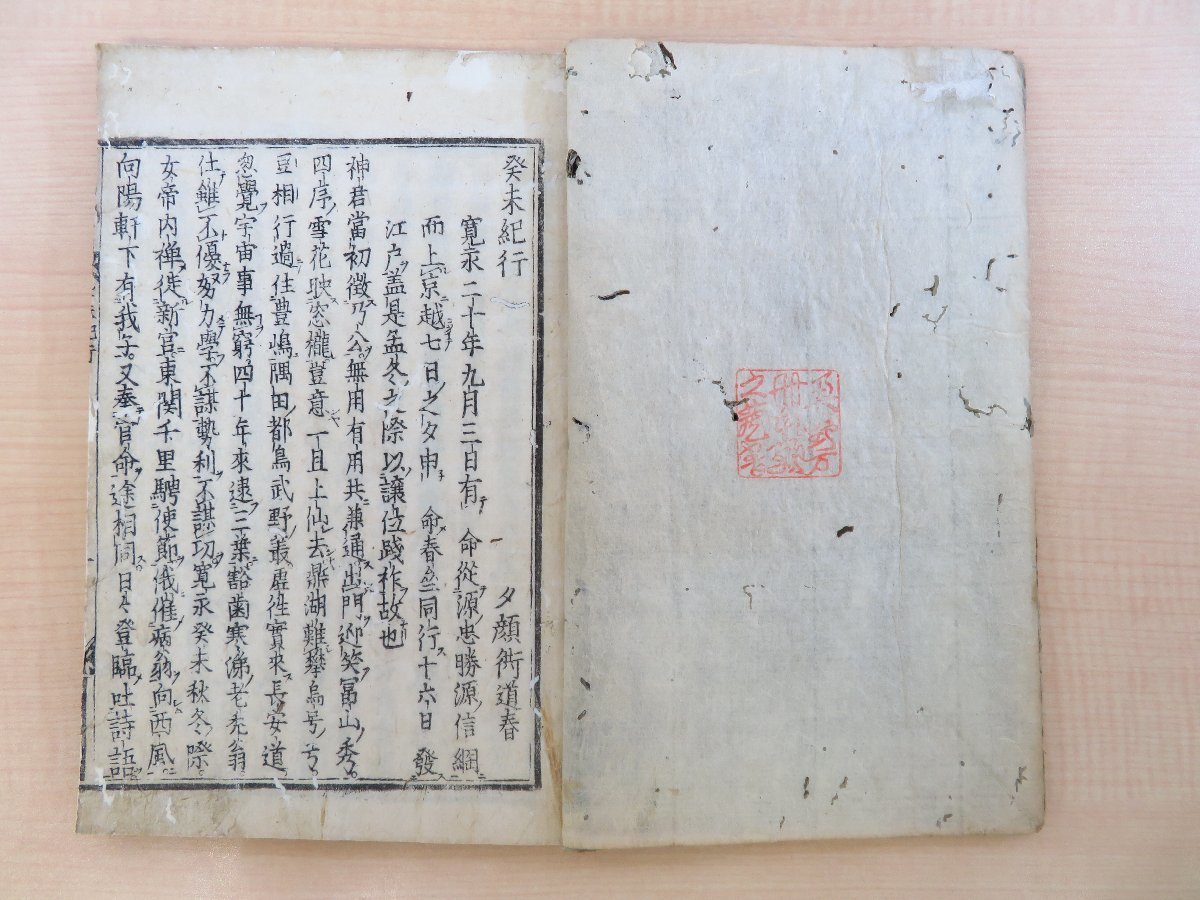 癸未紀行
夕顔衖道春
寛永二十年九月三日有命從源忠勝源信綱
而上京越七日之夕申命春亝同行十六日發
江戸盖是孟冬之際以讓位踐祚故也
神君當初徴乃公無用有用共兼通出門迎笑冨山秀
四序雪花映窓櫳豈意一旦上仙去鼎湖難攀烏号弓
豆相行過住豊嶋隅田都鳥武野叢虚徃實來長安道
忽覺宇宙事無窮四十年來逮三葉豁齒寒涕老禿翁
仕雖不優努力學不謀勢利不謀功寛永癸未秋冬際
女帝内禅徙新宮東関千里騁使節俄催病翁向西風
向陽軒下有我子又奉官命途相同日々登臨吐詩語